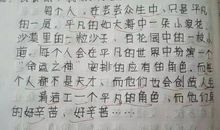 每个人，在芸芸众生中，只是平凡
的一员，平凡的如大海中一朵小浪花，
沙漠里的一粒沙子，百花园中的一枝小
每个人会在平凡的世界中扮演一个
命运之神 安排的应有的角色，而
个人都不是天才，而他们也会创造人生
着一个平凡的角色，而他们
的好辛苦，好辛苦……